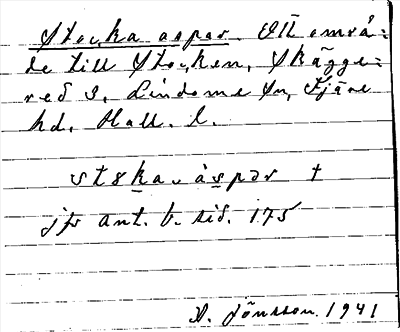 Stocka aspar. Ett områ=
de till Stocken, Skägge=
red 3, Lindome sn, Fjäre
hd, Hall. l.
stɷka. àspər †
jfr ant. b. sid. 175
A. Jönsson. 1941